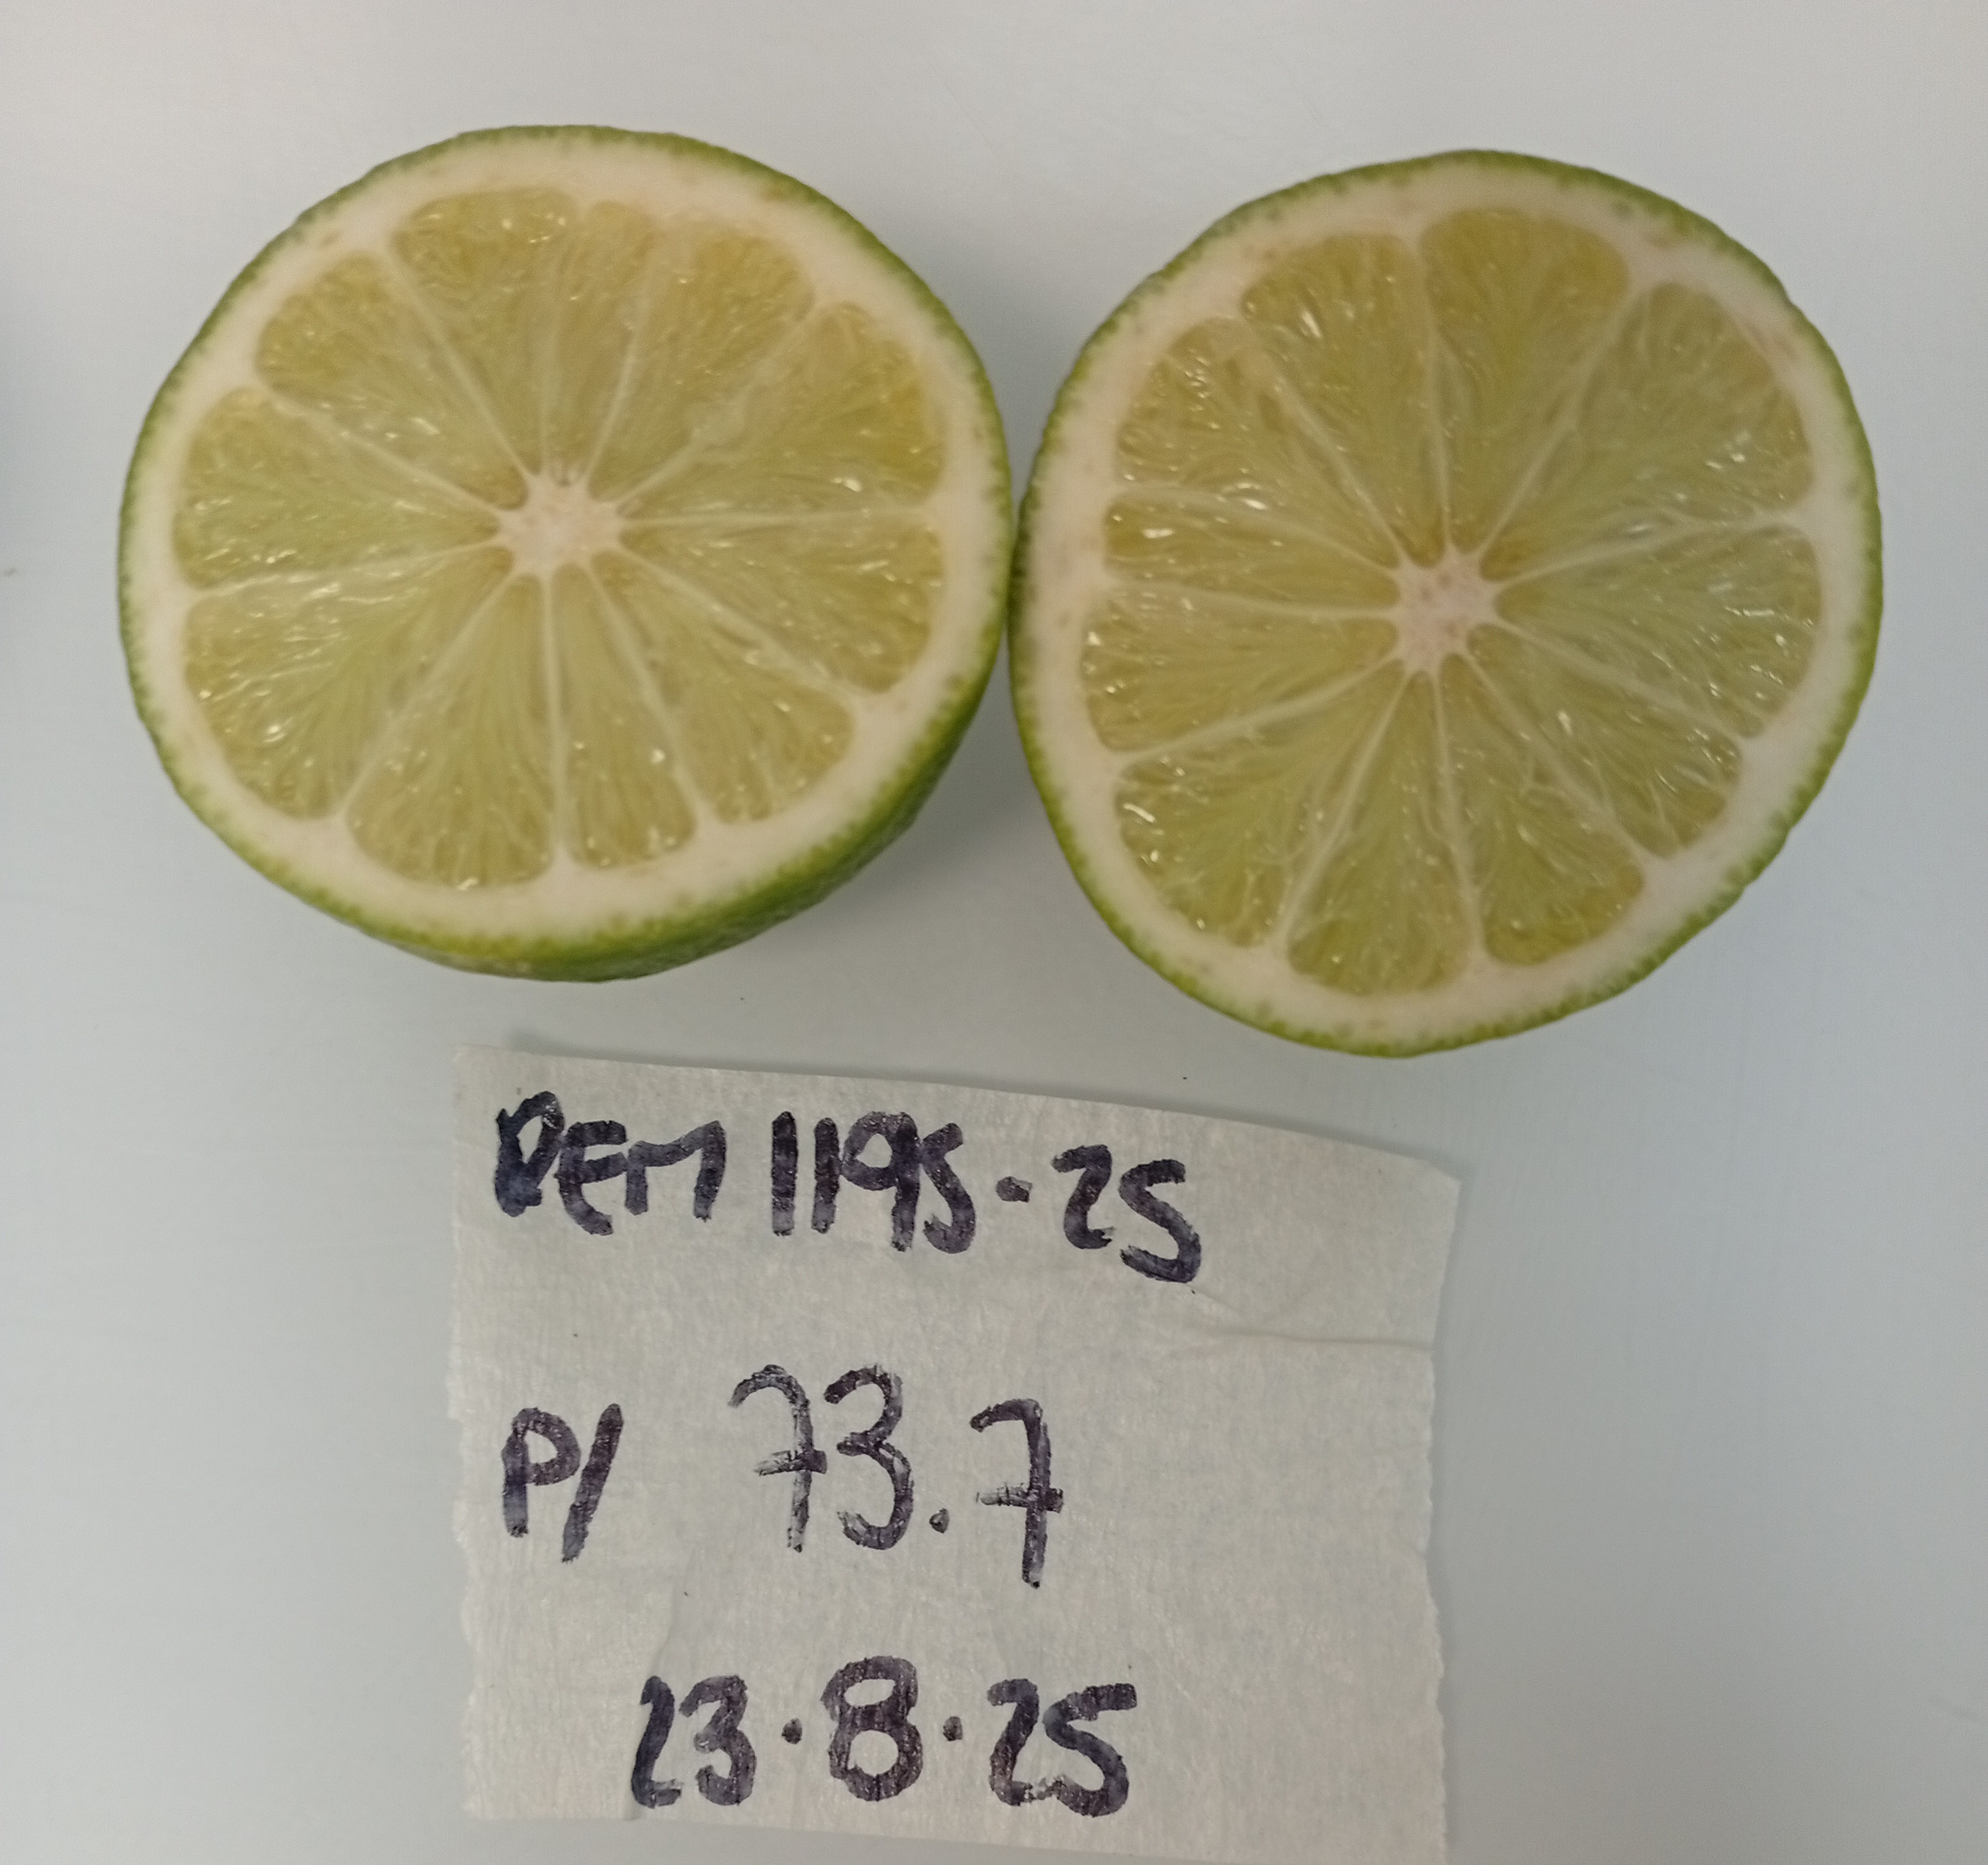 REM 1195-25
P/ 73.7
23.8.25